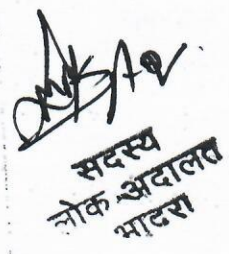 सदस्य
लोक अदालत
भादरा